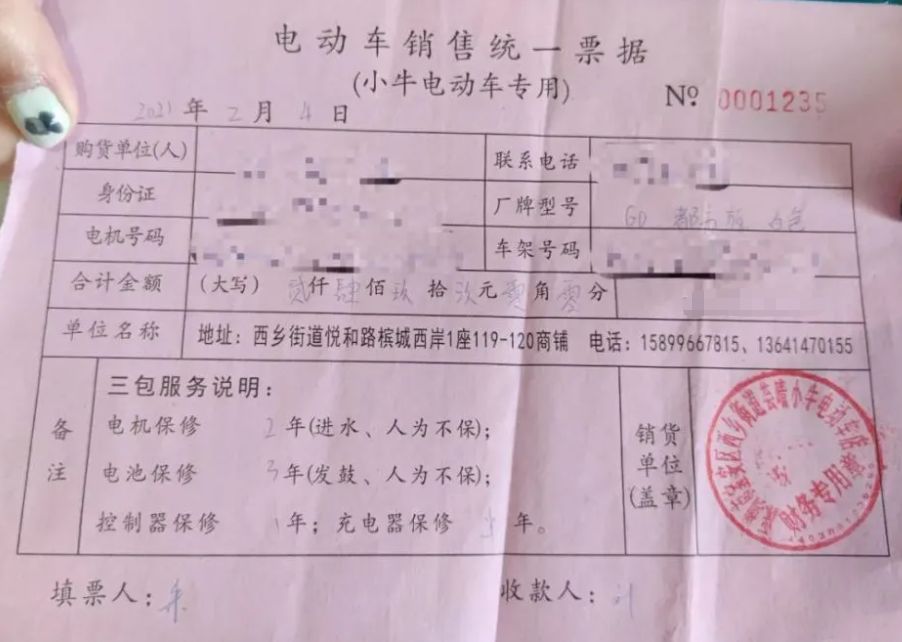 电动车销售统一票据
(小牛电动车专用)
№ 0001235
2021年2月4日
购货单位(人)
联系电话
身份证
厂牌型号 GD 都市版 白色
电机号码
车架号码
合计金额 (大写) 贰仟肆佰玖拾玖元零角零分
单位名称 地址：西乡街道悦和路槟城西岸1座119-120商铺 电话：15899667815、13641470155
备注
三包服务说明：
电机保修 2年(进水、人为不保)；
电池保修 3年(发鼓、人为不保)；
控制器保修 1年；充电器保修 年。
销货单位(盖章)
宝安区西乡街道芸晴小牛电动车店
财务专用章
填票人：
收款人：